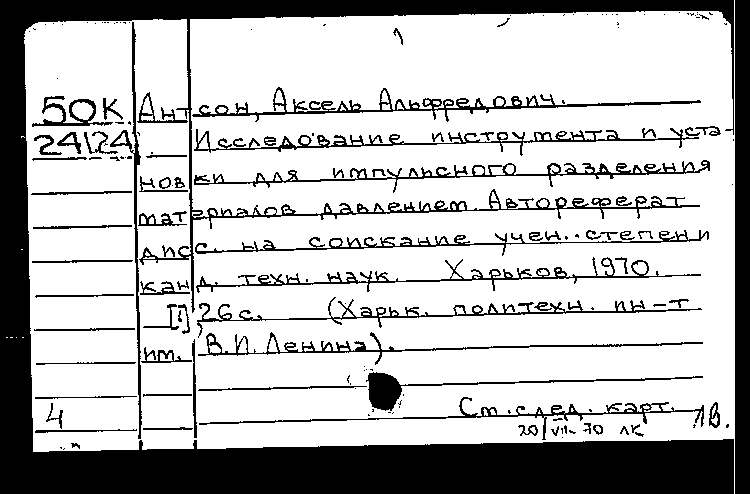 50К Антсон, Аксель Альфредович.
24124 Исследование инструмента и уста-
новки для импульсного разделения
материалов давлением. Автореферат
дисс. на соискание учен. степени
канд. техн. наук. Харьков, 1970.
[1], 26 с. (Харьк. политехн. ин-т
им. В.И. Ленина).
4 См. след. карт.
20/VII-70 ЛК